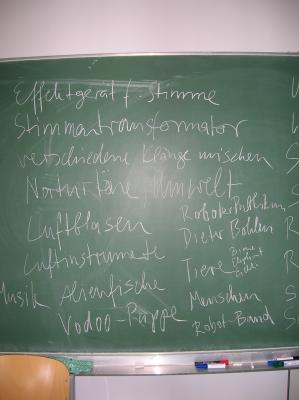 Effektgerät f. Stimme
Stimmantransformator
verschiedene Klänge mischen
Naturtöne, Umwelt
Luftblasen
Luftinstrumente
Musik Alienfische
Vodoo-Puppe
Dieter Bohlen
Tiere
Menschen
Robot-Band